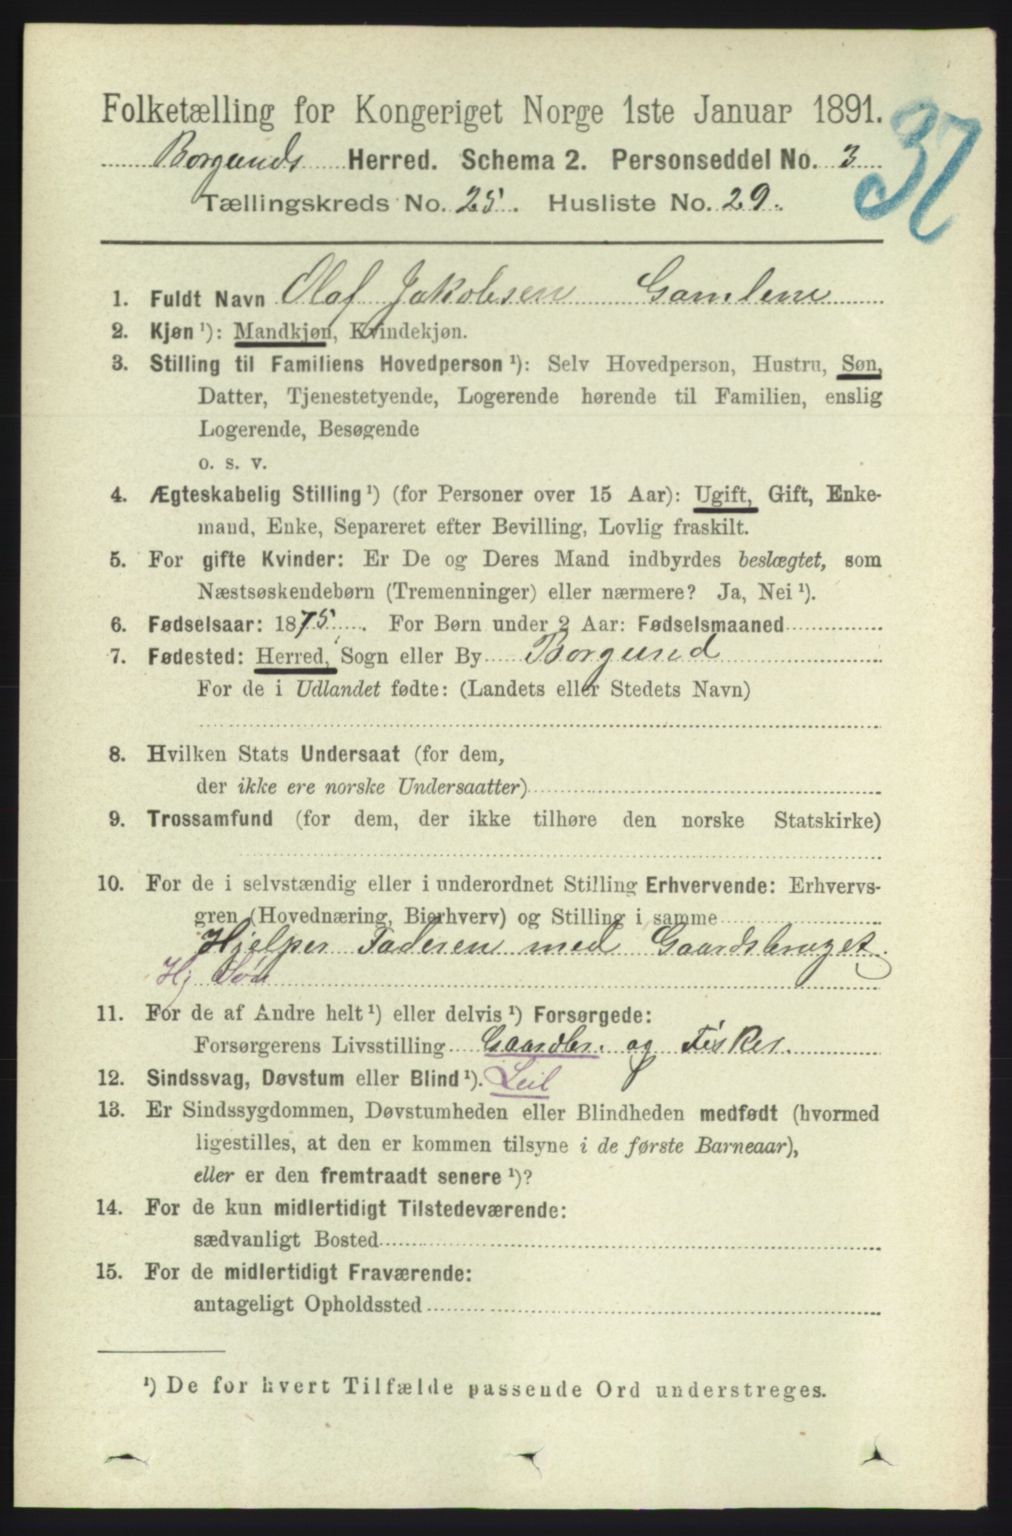 Folketælling for Kongeriget Norge 1ste Januar 1891.
37
Borgunds Herred. Schema 2. Personseddel No. 3
Tællingskreds No. 25. Husliste No. 29.
1. Fuldt Navn Olaf Jakobsen
2. Kjøn ¹): Mandkjøn, Kvindekjøn.
3. Stilling til Familiens Hovedperson ¹): Selv Hovedperson, Hustru, Søn,
Datter, Tjenestetyende, Logerende hørende til Familien, enslig
Logerende, Besøgende
o. s. v.
4. Ægteskabelig Stilling ¹) (for Personer over 15 Aar): Ugift, Gift, Enke-
mand, Enke, Separeret efter Bevilling, Lovlig fraskilt.
5. For gifte Kvinder: Er De og Deres Mand indbyrdes beslægtet, som
Næstsøskendebørn (Tremenninger) eller nærmere? Ja, Nei ¹).
6. Fødselsaar: 1875. For Børn under 2 Aar: Fødselsmaaned
7. Fødested: Herred, Sogn eller By Borgund
For de i Udlandet fødte: (Landets eller Stedets Navn)
8. Hvilken Stats Undersaat (for dem,
der ikke ere norske Undersaatter)
9. Trossamfund (for dem, der ikke tilhøre den norske Statskirke)
10. For de i selvstændig eller i underordnet Stilling Erhvervende: Erhvervs-
gren (Hovednæring, Bierhverv) og Stilling i samme
Hjelper Faderen med Gaardsbruget
Hj
11. For de af Andre helt ¹) eller delvis ¹) Forsørgede:
Forsørgerens Livsstilling Gaardbr. og Fisker.
12. Sindssvag, Døvstum eller Blind ¹). Leil
13. Er Sindssygdommen, Døvstumheden eller Blindheden medfødt (hvormed
ligestilles, at den er kommen tilsyne i de første Barneaar),
eller er den fremtraadt senere ¹)?
14. For de kun midlertidigt Tilstedeværende:
sædvanligt Bosted
15. For de midlertidigt Fraværende:
antageligt Opholdssted
¹) De for hvert Tilfælde passende Ord understreges.